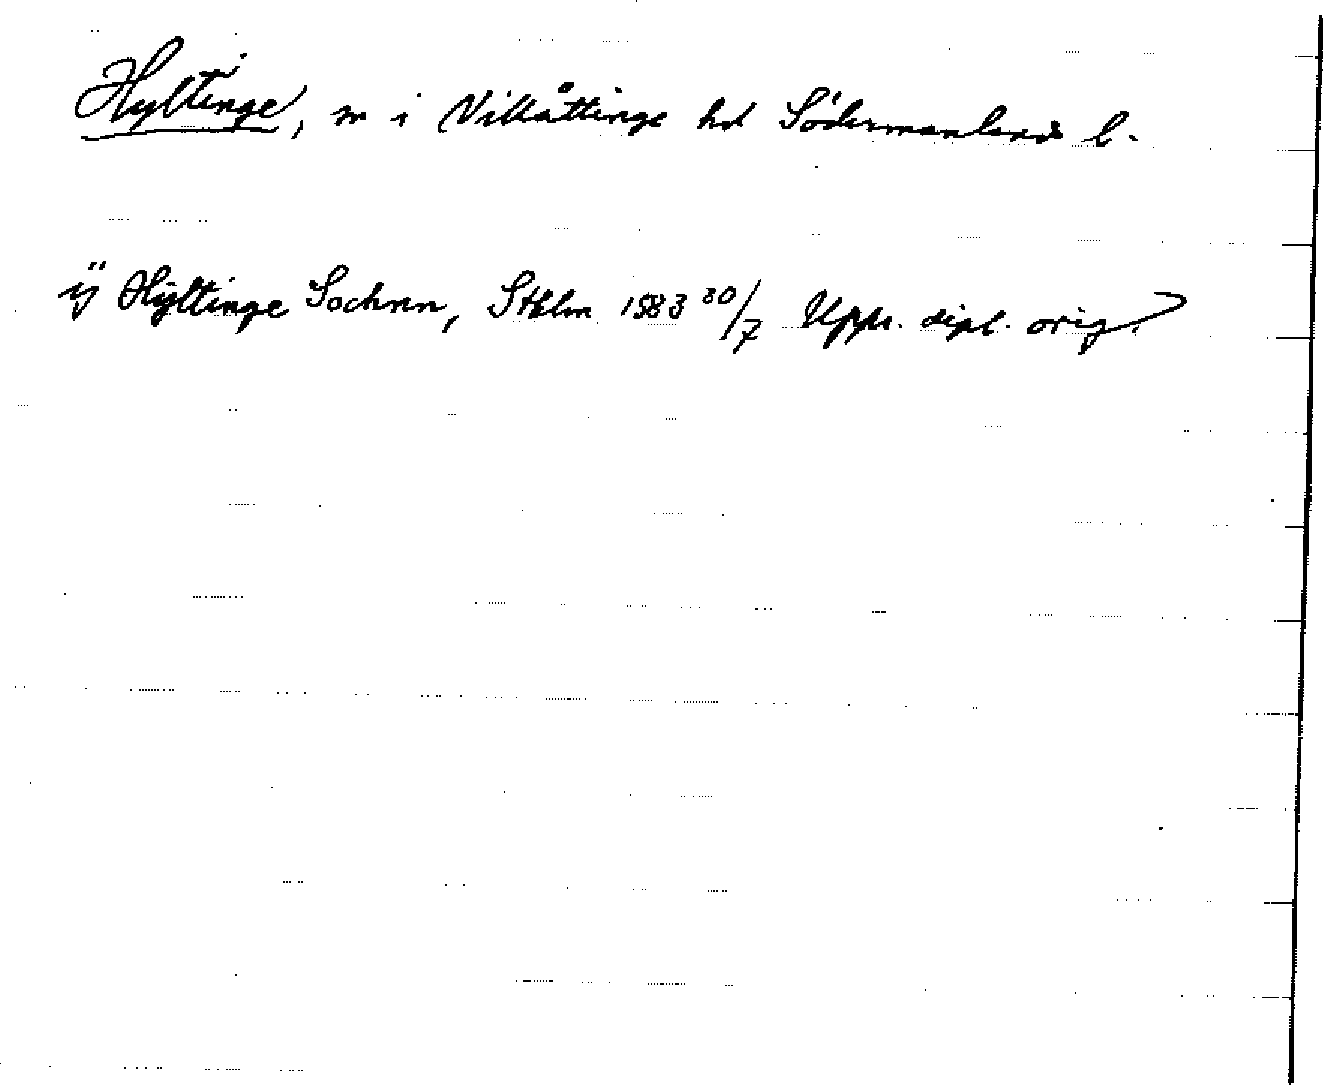 Hyltinge, sn i Villåttinge hd Södermanlands l.
ÿ Hyltinge Sochnn, Sthlm 1583 30/7 Upps. dipl. orig.